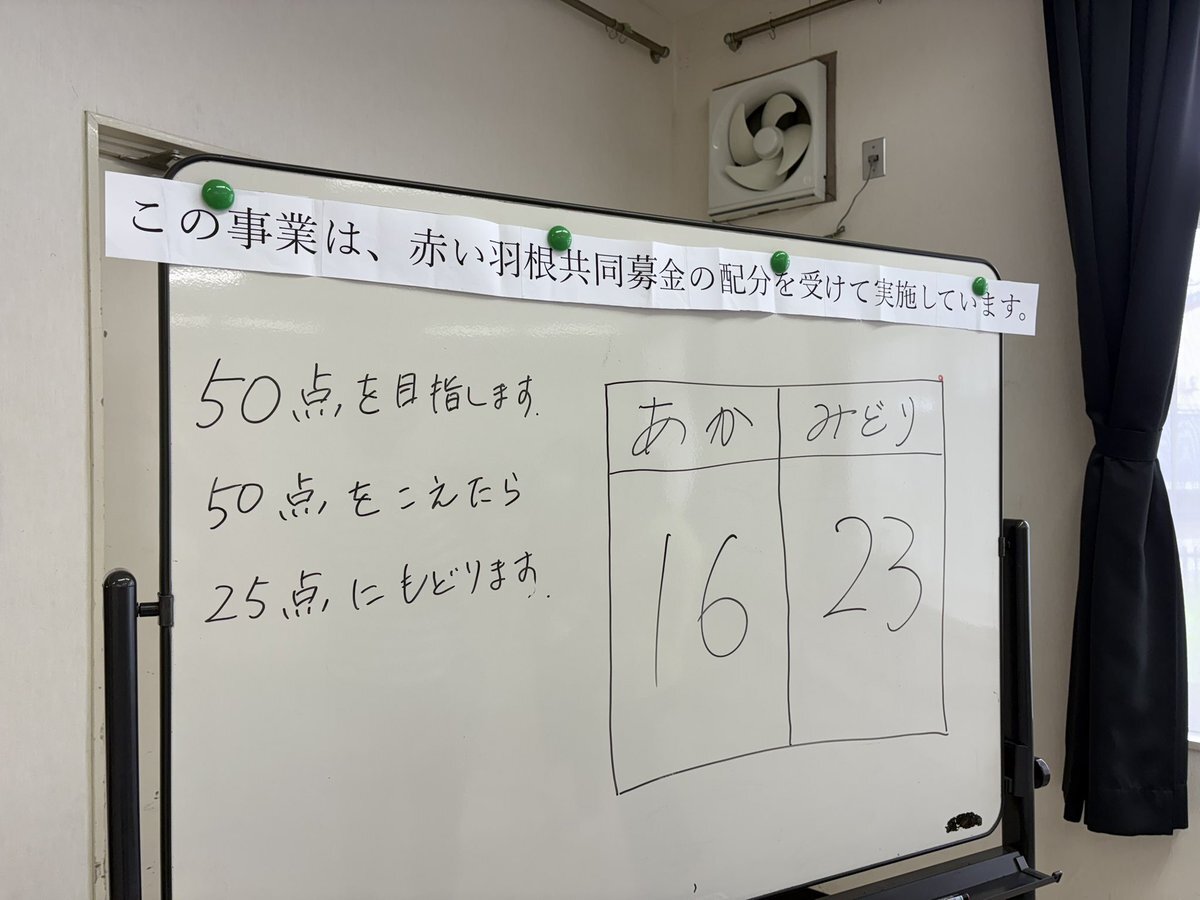 この事業は、赤い羽根共同募金の配分を受けて実施しています。
50点を目指します.
50点をこえたら
25点にもどります.
あか みどり
16 23